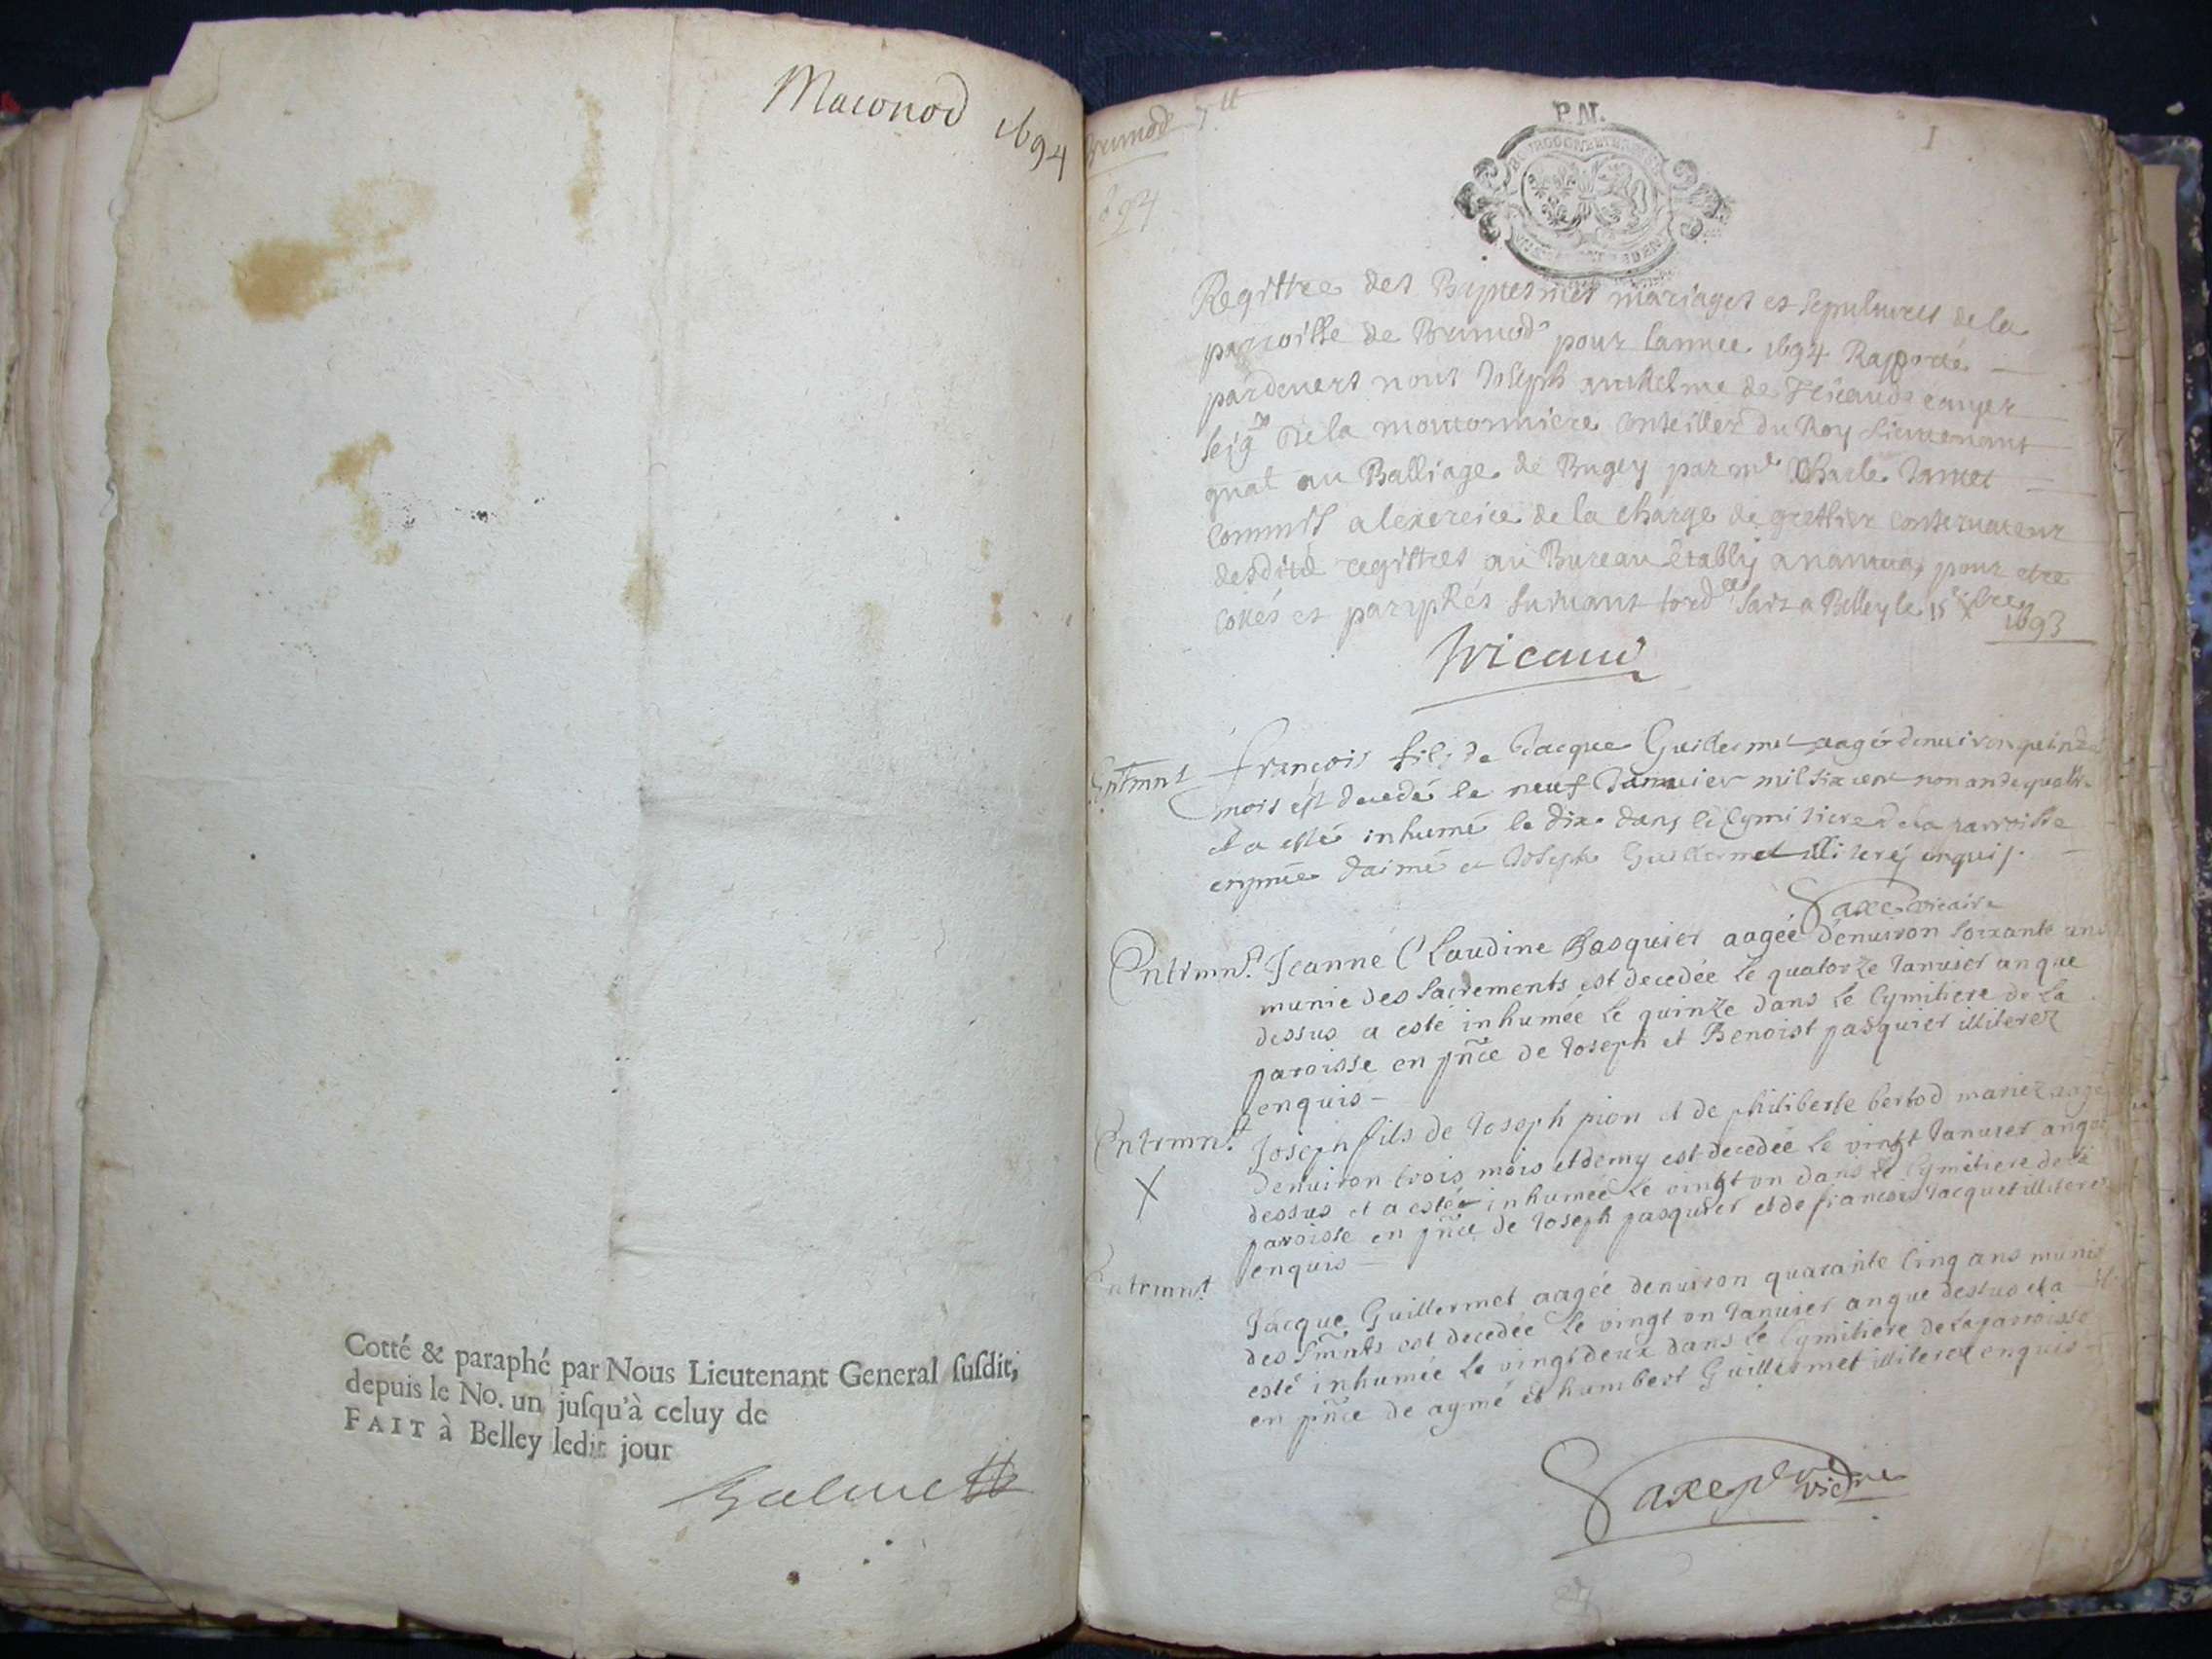 Maconod 1694
Cotté & paraphé par Nous Lieutenant General ſuſdit,
depuis le No. un juſqu'à celuy de
FAIT à Belley ledit jour
Brenod 7ll
1694
P.N.
I
Regittre des Baptesmes mariages et sepultures de la
parroisse de Brenod pour lannee 1694 Rapporté
pardevers nous Joseph anthelme de Tricaud escuyer
seigr de la mouconniere conseiller du Roy Lieutenant
gnal au Balliage de Bugey par me Charle Jantet
commis a lexercice de la charge de greffier conservateur
desdits regittres au Bureau établij a nantua pour etre
cottés et paraphés suivant lordce fait a Belley le 15e Xbre
1693
Tricaud
Entrmnt François fils de Jacque Guillermet aagé denuiron quinze
mois est decedé le neuf Januier mil six cent nonante quattre
et a esté inhumé le dix dans le Cymitiere de la parroisse
en pnce daimé et Joseph Guillermet illiterés enquis.
Saxe vicaire
Entrmnt. Jeanne Claudine Pasquier aagée denuiron soixante ans
munie des sacrements est decedée le quatorze Januier an que
dessus a esté inhumée le quinze dans le Cymitiere de la
paroisse en pñce de Joseph et Benoist pasquier illiterez
enquis -
Entrmnt. Joseph fils de Joseph pion et de philiberte bertod mariez aagé
X denuiron trois mois et demy est decedée le vingt Januier an que
dessus et a estée inhumée le vingt on dans le Cymitiere de la
paroisse en pñce de Joseph pasquier et de francois Jacquet illiterez
enquis -
Entrmnt Jacque Guillermet aagée denuiron quarante cinq ans munie
des Smnts est decedée le vingt on Januier an que dessus et a
esté inhumée le vingt deux dans le Cymitiere de la parroisse
en pñce de aymé et humbert Guillermet illiterez enquis -
Saxe pbr vicre